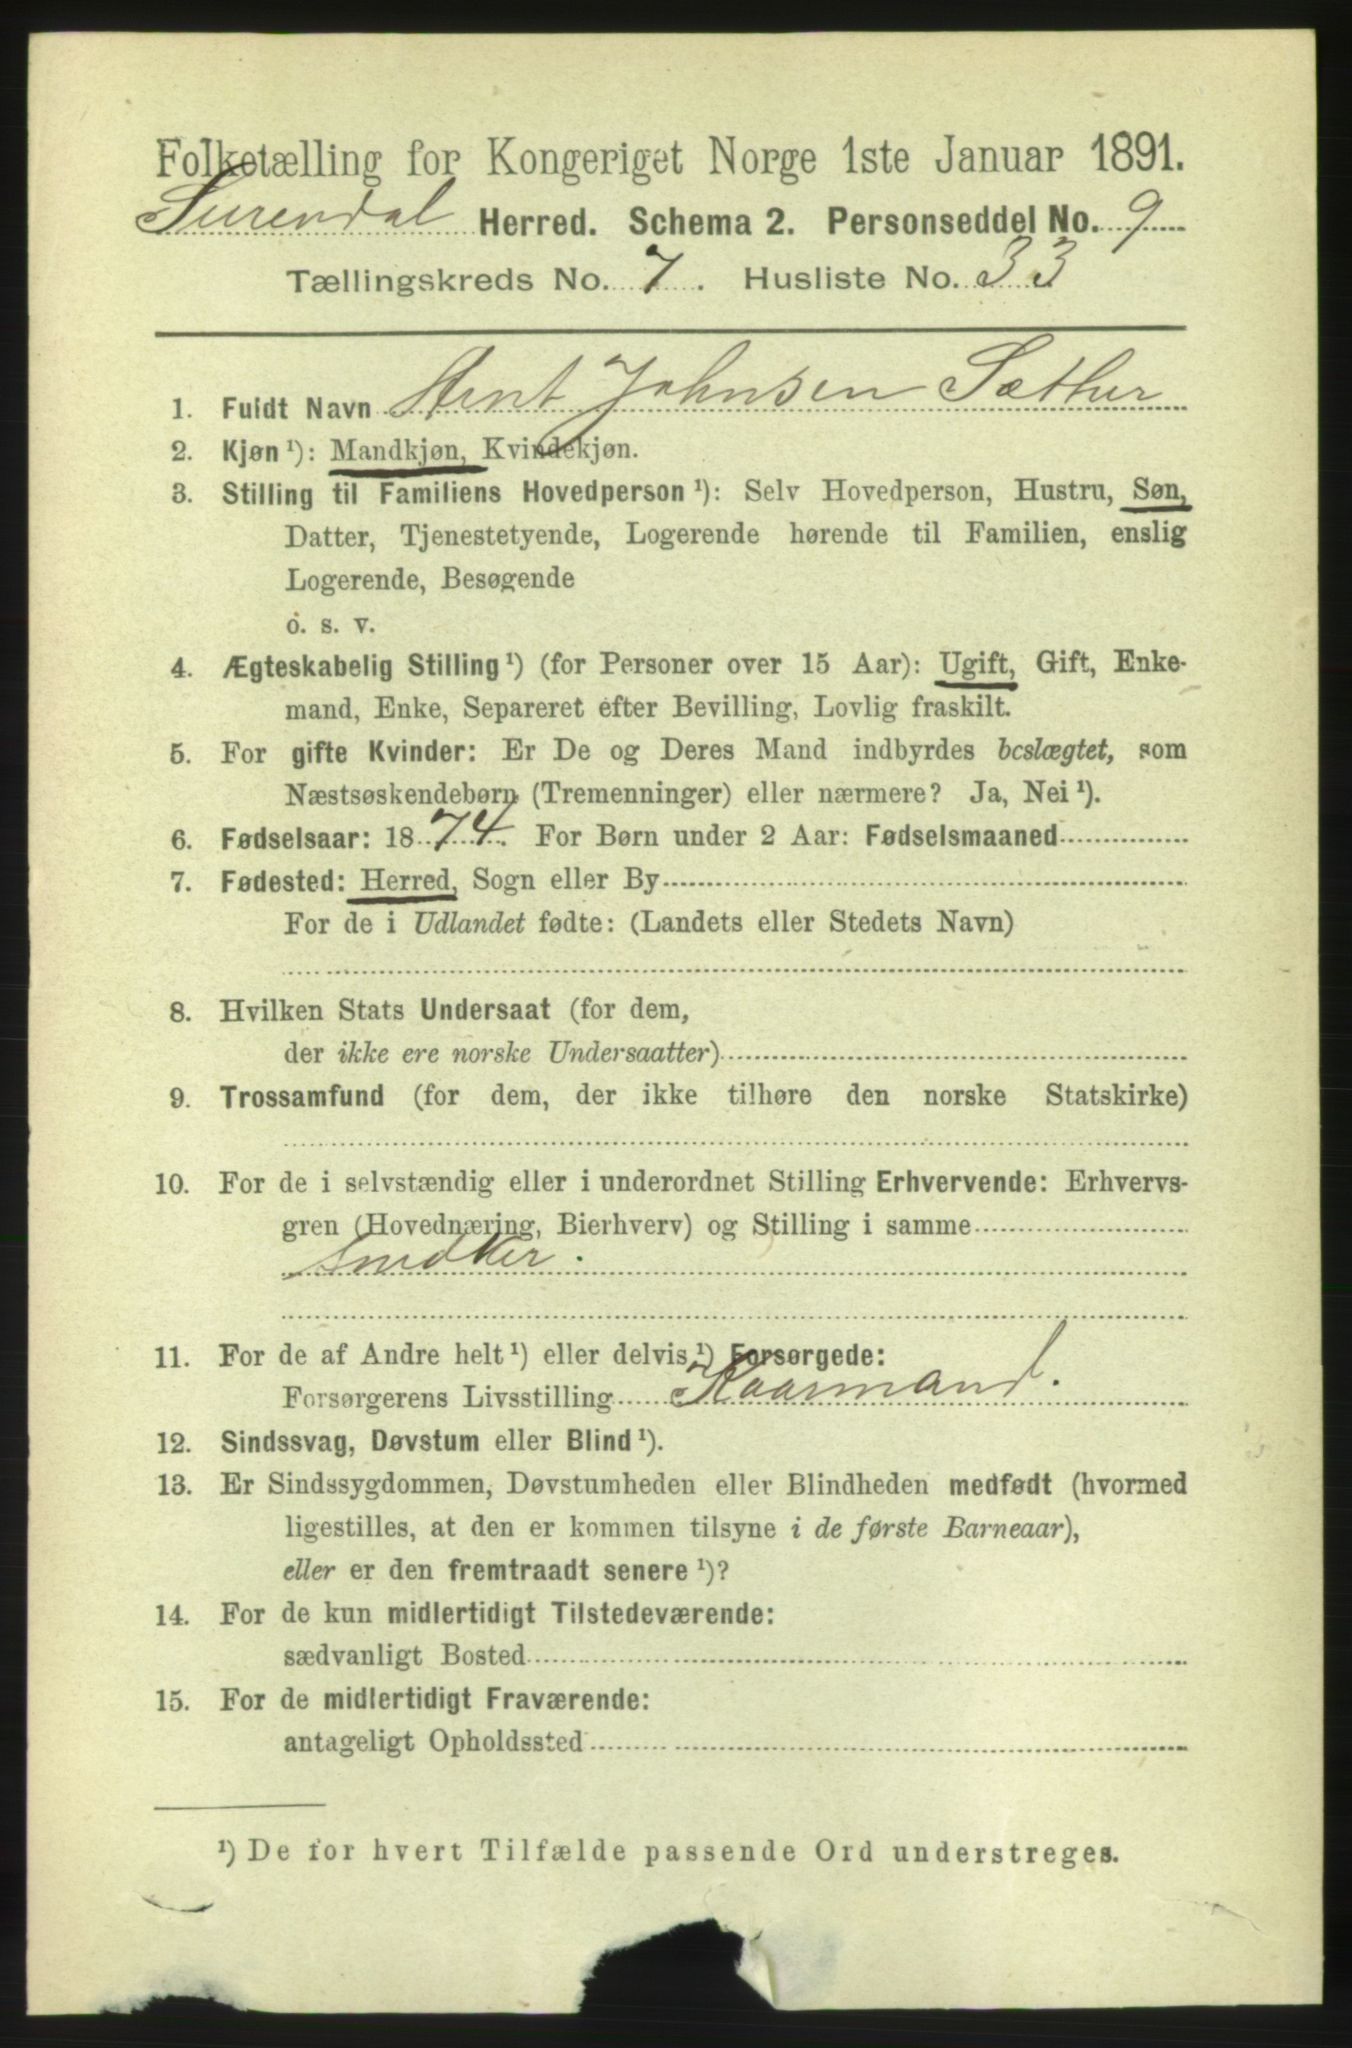 Folketælling for Kongeriget Norge 1ste Januar 1891.
Surendal Herred. Schema 2. Personseddel No. 9
Tællingskreds No. 7. Husliste No. 33
1. Fuldt Navn Arnt Johnsen Sæther
2. Kjøn ¹): Mandkjøn, Kvindekjøn.
3. Stilling til Familiens Hovedperson ¹): Selv Hovedperson, Hustru, Søn,
Datter, Tjenestetyende, Logerende hørende til Familien, enslig
Logerende, Besøgende
o. s. v.
4. Ægteskabelig Stilling ¹) (for Personer over 15 Aar): Ugift, Gift, Enke-
mand, Enke, Separeret efter Bevilling, Lovlig fraskilt.
5. For gifte Kvinder: Er De og Deres Mand indbyrdes beslægtet, som
Næstsøskendebørn (Tremenninger) eller nærmere? Ja, Nei ¹).
6. Fødselsaar: 1874. For Børn under 2 Aar: Fødselsmaaned
7. Fødested: Herred, Sogn eller By
For de i Udlandet fødte: (Landets eller Stedets Navn)
8. Hvilken Stats Undersaat (for dem,
der ikke ere norske Undersaatter)
9. Trossamfund (for dem, der ikke tilhøre den norske Statskirke)
10. For de i selvstændig eller i underordnet Stilling Erhvervende: Erhvervs-
gren (Hovednæring, Bierhverv) og Stilling i samme
Snedker.
11. For de af Andre helt ¹) eller delvis ¹) Forsørgede:
Forsørgerens Livsstilling Kaarmand.
12. Sindssvag, Døvstum eller Blind ¹).
13. Er Sindssygdommen, Døvstumheden eller Blindheden medfødt (hvormed
ligestilles, at den er kommen tilsyne i de første Barneaar),
eller er den fremtraadt senere ¹)?
14. For de kun midlertidigt Tilstedeværende:
sædvanligt Bosted
15. For de midlertidigt Fraværende:
antageligt Opholdssted
¹) De for hvert Tilfælde passende Ord understreges.